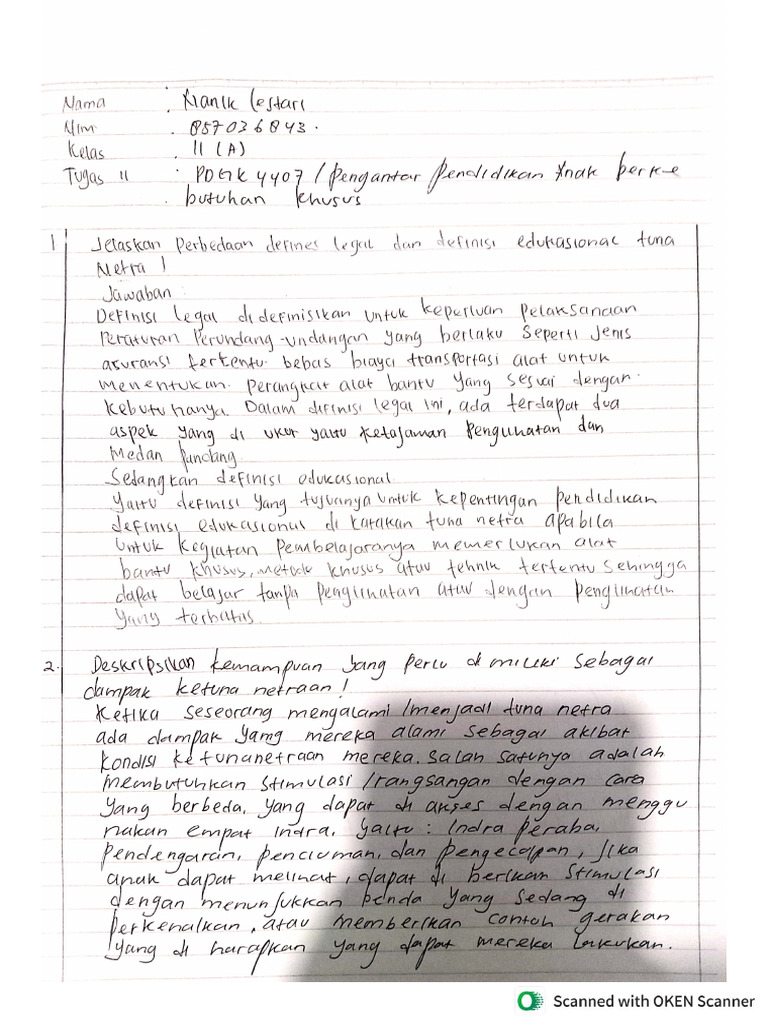 Nama : Nanik lestari
Nim : 857036843.
Kelas : II (A)
Tugas II : PDGK 4407 / pengantar pendidikan Anak berke
butuhan khusus
1 Jelaskan perbedaan defines legal dan definisi edukasional tuna
Netra !
Jawaban :
Definisi legal di definisikan untuk keperluan pelaksanaan
Peraturan Perundang-undangan yang berlaku seperti Jenis
asuransi tertentu. bebas biaya transportasi alat untuk
menentukan. perangkat alat bantu yang sesuai dengan.
kebutuhanya. Dalam difinisi legal ini, ada terdapat dua
aspek yang di ukur yaitu ketajaman penglihatan dan
medan pandang.
Sedangkan definisi edukasional
yaitu definisi yang tujuanya untuk kepentingan pendidikan
definisi edukasional di katakan tuna netra apabila
untuk kegiatan pembelajaranya memerlukan alat
bantu khusus, metode khusus atau tehnik tertentu sehingga
dapat belajar tanpa penglihatan atau dengan penglihatan
yang terbatas.
2. Deskripsikan kemampuan yang perlu di miliki sebagai
dampak ketuna netraan !
Ketika seseorang mengalami /menjadi tuna netra
ada dampak yang mereka alami sebagai akibat
kondisi ketunanetraan mereka. Salah satunya adalah
membutuhkan stimulasi /rangsangan dengan cara
yang berbeda, yang dapat di akses dengan menggu
nakan empat indra, yaitu : Indra peraba,
pendengaran, penciuman, dan pengecapan, Jika
anak dapat melihat, dapat di berikan stimulasi
dengan menunjukkan benda yang sedang di
perkenalkan, atau memberikan contoh gerakan
yang di harapkan yang dapat mereka lakukan.
Scanned with OKEN Scanner